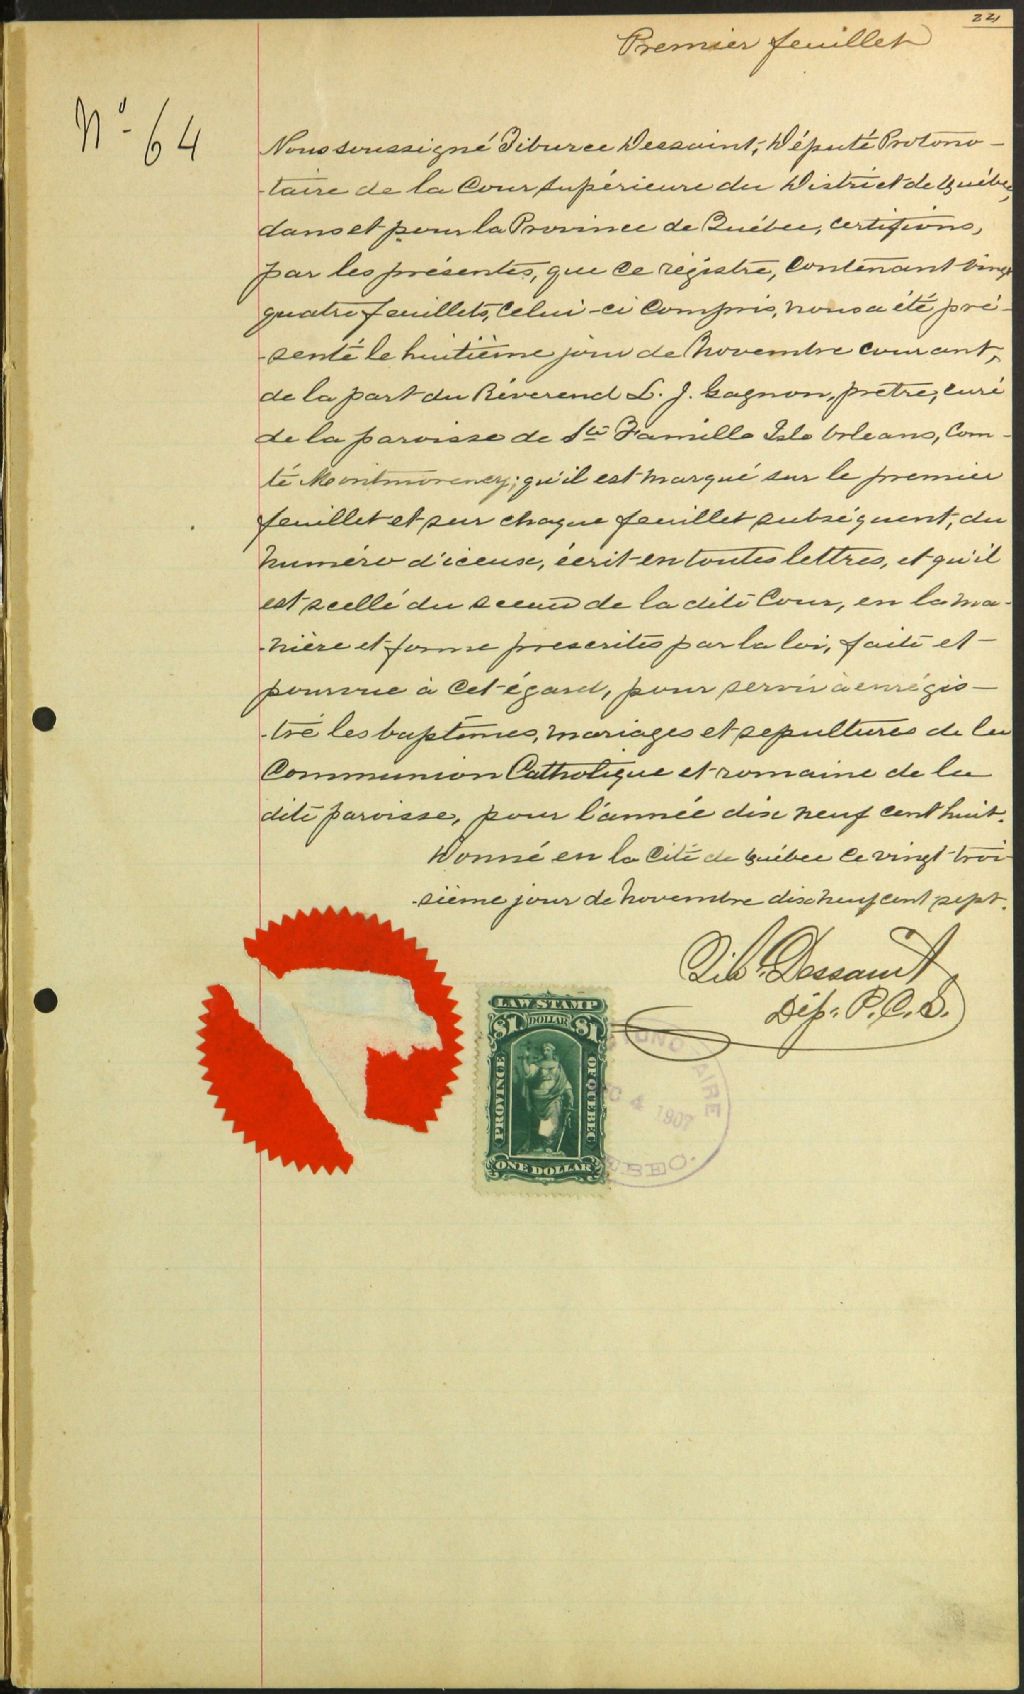 221
Premier feuillet
No 64
Nous soussigné Tiburce Dessaint, Député Protono-
-taire de la Cour Supérieure du District de Québec,
dans et pour la Province de Québec, certifions,
par les présentes, que ce régistre, contenant vingt
quatre feuillets, celui-ci compris, nous a été pré-
-senté le huitième jour de Novembre courant,
de la part du Révérend L. J. Gagnon, prêtre, curé
de la paroisse de Ste Famille Isle Orleans, Com-
té Montmorency; qu'il est marqué sur le premier
feuillet et sur chaque feuillet subséquent, du
numéro d'iceux, écrit en toutes lettres, et qu'il
est scellé du sceau de la dite Cour, en la ma-
-nière et forme prescrites par la loi, faite et
pourvue à cet égard, pour servir à enrégis-
-tré les baptêmes, mariages et sepultures de la
Communion Catholique et romaine de la
dite paroisse, pour l'année dix neuf cent huit.
Donné en la Cité de Québec ce vingt troi
-sième jour de Novembre dix neuf cent sept.
Tib. Dessaint
Dép. P.C.S.
LAW STAMP
$1 DOLLAR $1
PROVINCE OF QUEBEC
ONE DOLLAR
4 1907